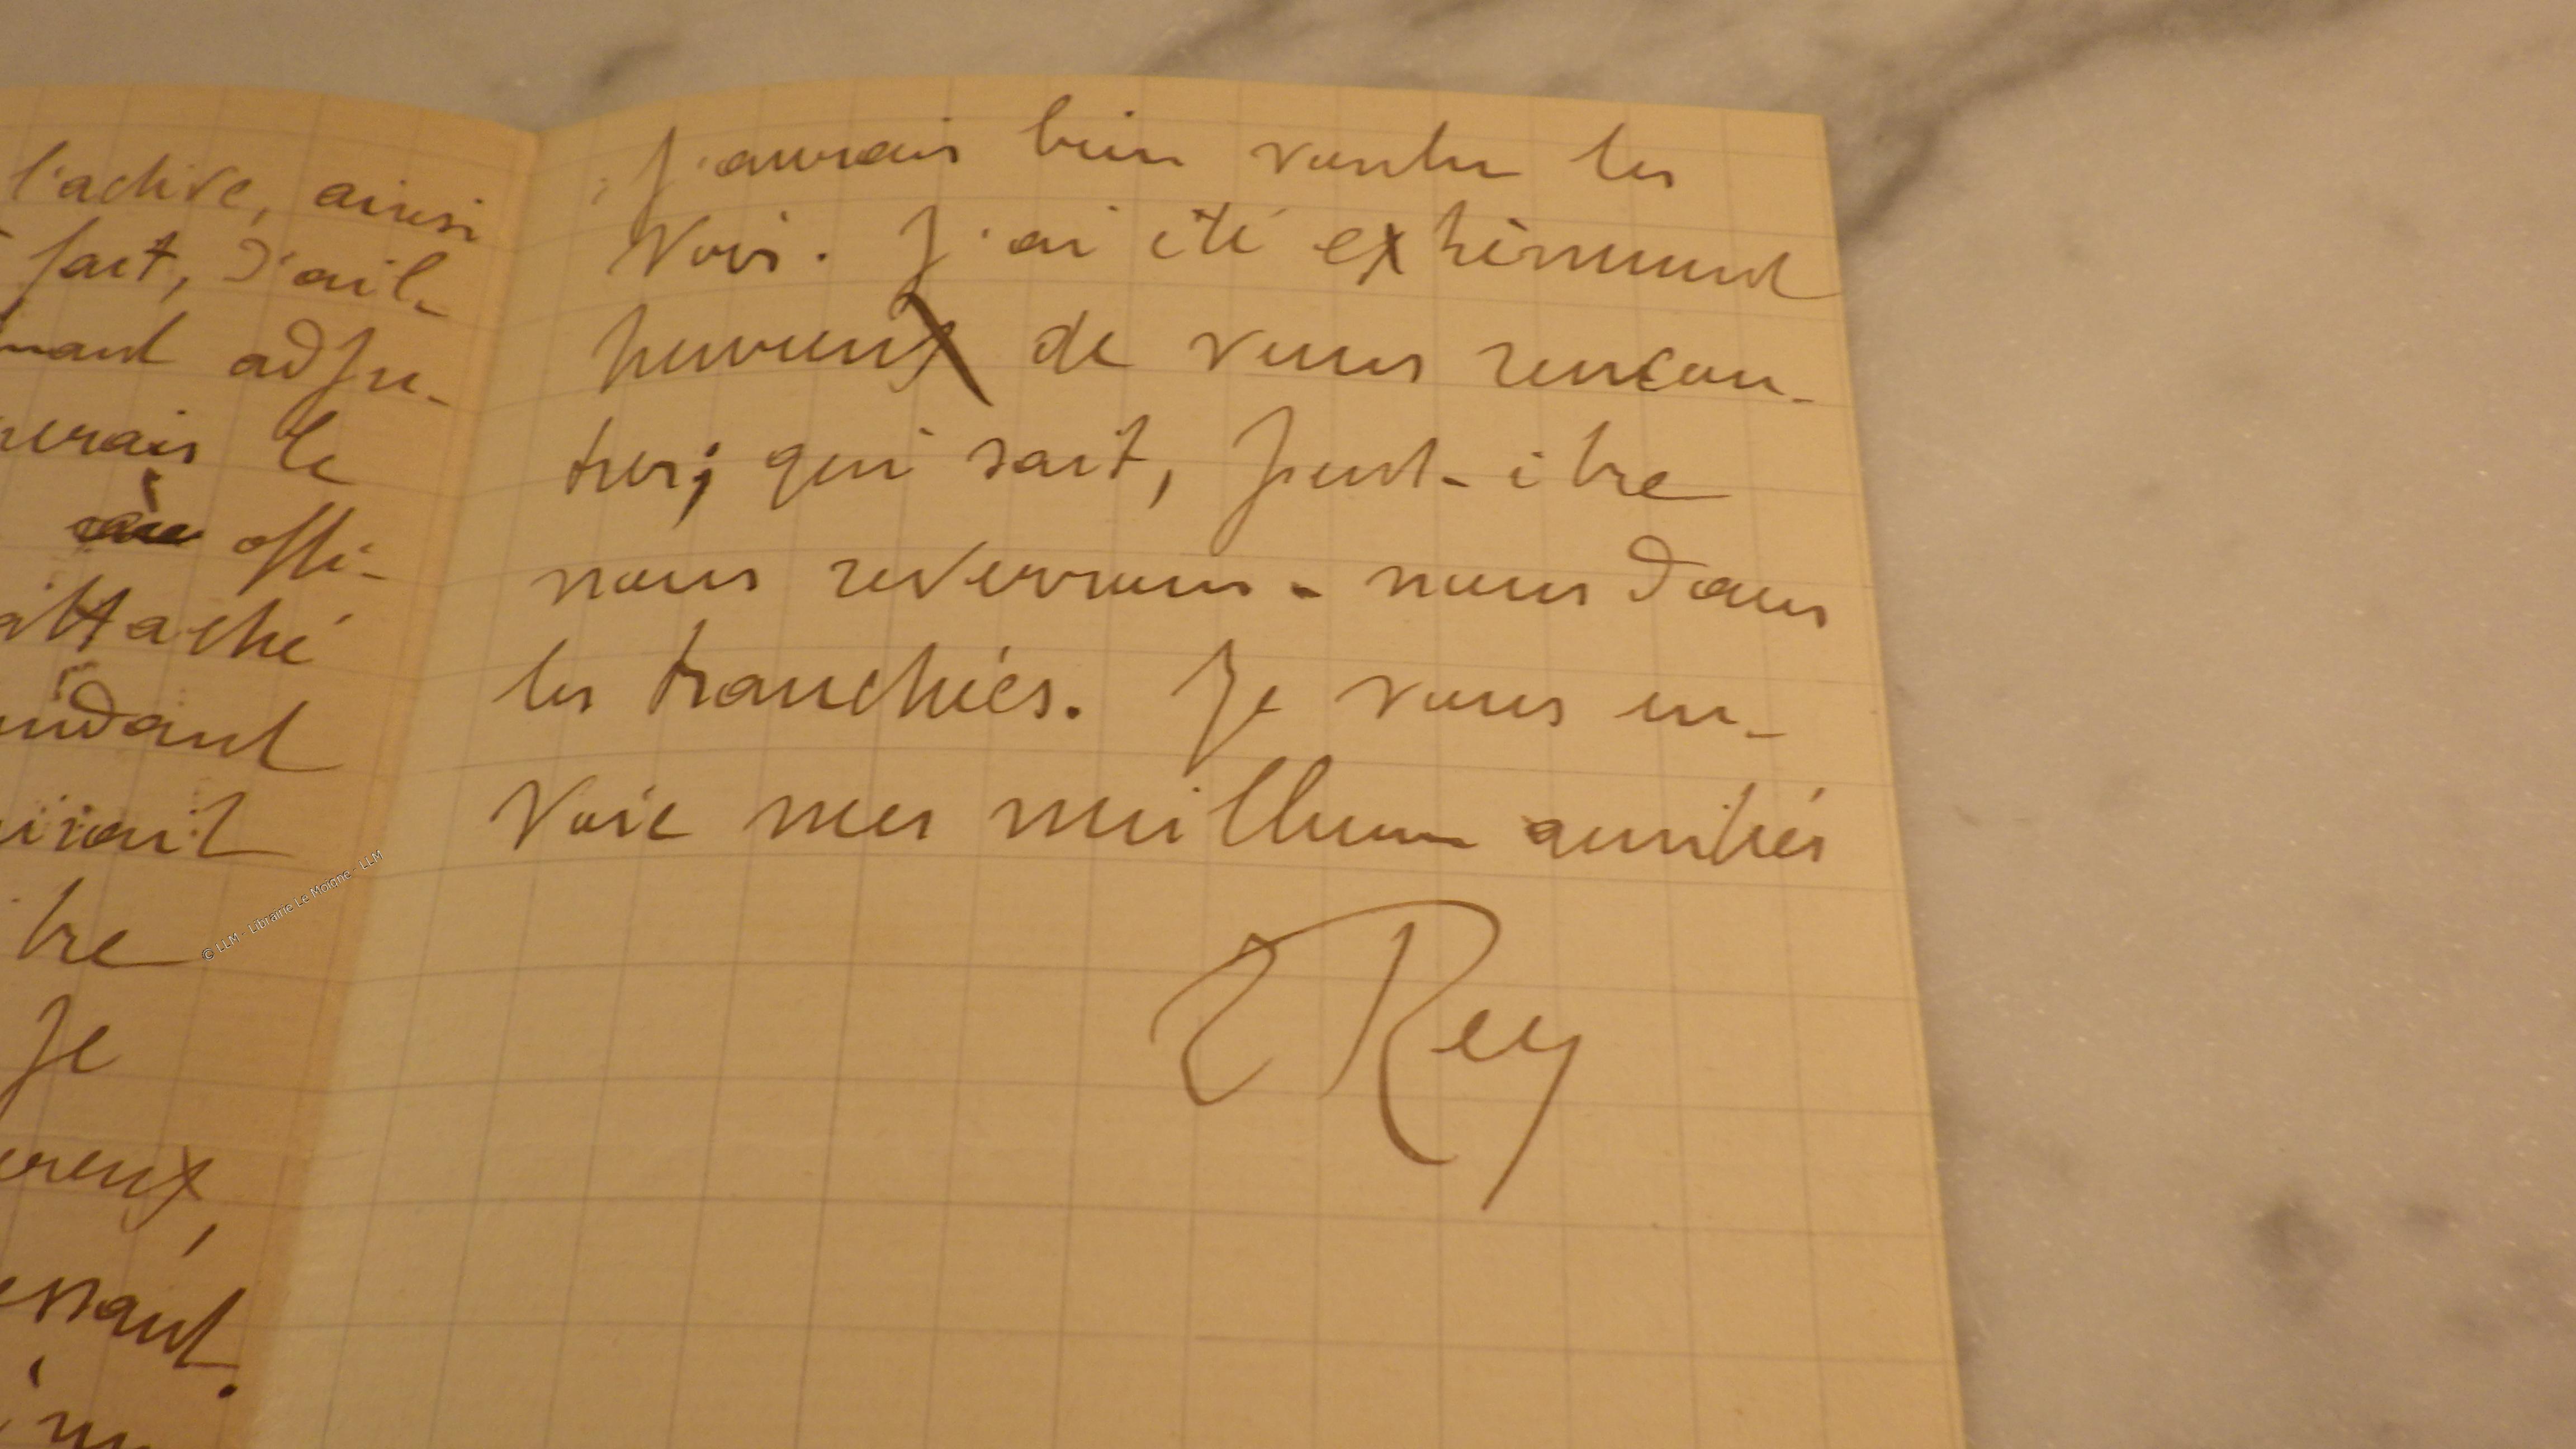 l'active, ainsi
fait, d'ail-
adju-
le
offi-
attaché
Je
j'aurais bien voulu les
voir. J'ai été extrêmement
heureux de vous rencon-
trer; qui sait, peut-être
nous reverrons-nous dans
les tranchées. Je vous en-
voie mes meilleures amitiés
E Rey
© LLM - Librairie Le Moigne - LLM